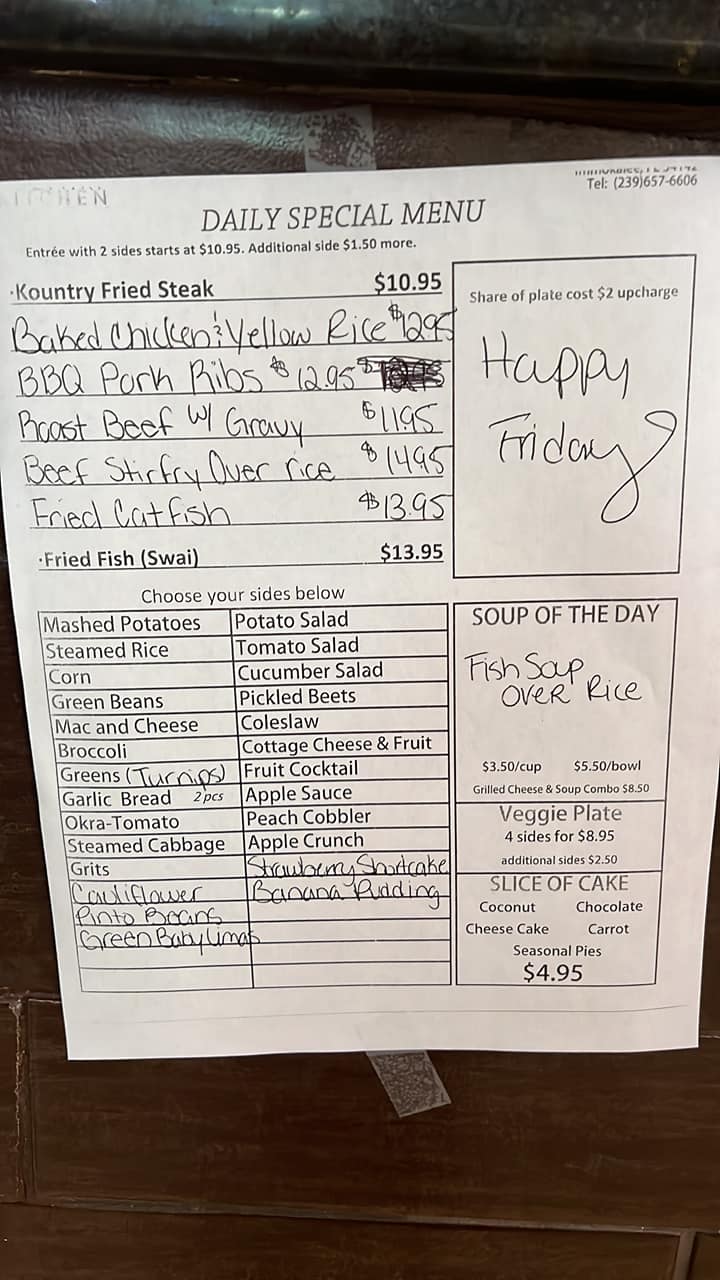 KITCHEN
Tel: (239)657-6606
DAILY SPECIAL MENU
Entrée with 2 sides starts at $10.95. Additional side $1.50 more.
·Kountry Fried Steak $10.95
Baked Chicken & Yellow Rice $12.95
BBQ Pork Ribs $12.95
Roast Beef w/ Gravy $11.95
Beef Stirfry Over rice $14.95
Fried Catfish $13.95
·Fried Fish (Swai) $13.95
Share of plate cost $2 upcharge
Happy
Friday
Choose your sides below
Mashed Potatoes Potato Salad
Steamed Rice Tomato Salad
Corn Cucumber Salad
Green Beans Pickled Beets
Mac and Cheese Coleslaw
Broccoli Cottage Cheese & Fruit
Greens (Turnips) Fruit Cocktail
Garlic Bread 2pcs Apple Sauce
Okra-Tomato Peach Cobbler
Steamed Cabbage Apple Crunch
Grits Strawberry Shortcake
Cauliflower Banana Pudding
Pinto Beans
Green Baby Limas
SOUP OF THE DAY
Fish Soup
OVER Rice
$3.50/cup $5.50/bowl
Grilled Cheese & Soup Combo $8.50
Veggie Plate
4 sides for $8.95
additional sides $2.50
SLICE OF CAKE
Coconut Chocolate
Cheese Cake Carrot
Seasonal Pies
$4.95